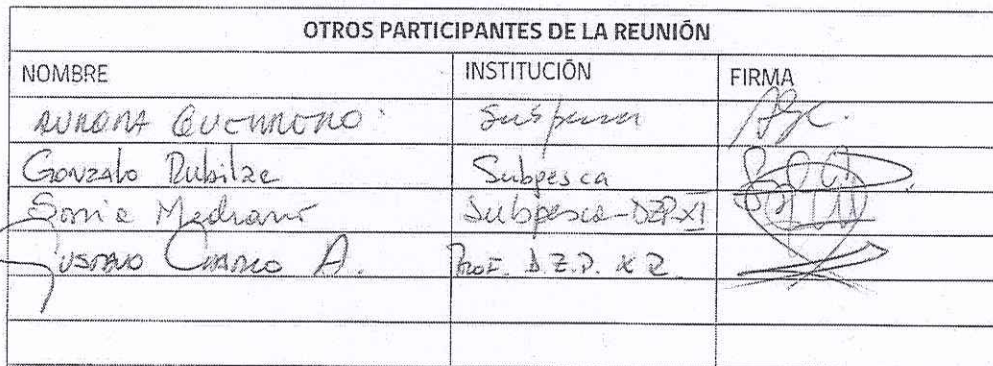 OTROS PARTICIPANTES DE LA REUNIÓN
NOMBRE INSTITUCIÓN FIRMA
AURORA GUERRERO
Gonzalo Rubilar Subpesca
Sonia Medrano Subpesca-DZP-XI
GUSTAVO A. PROF. D.Z.P. X R.